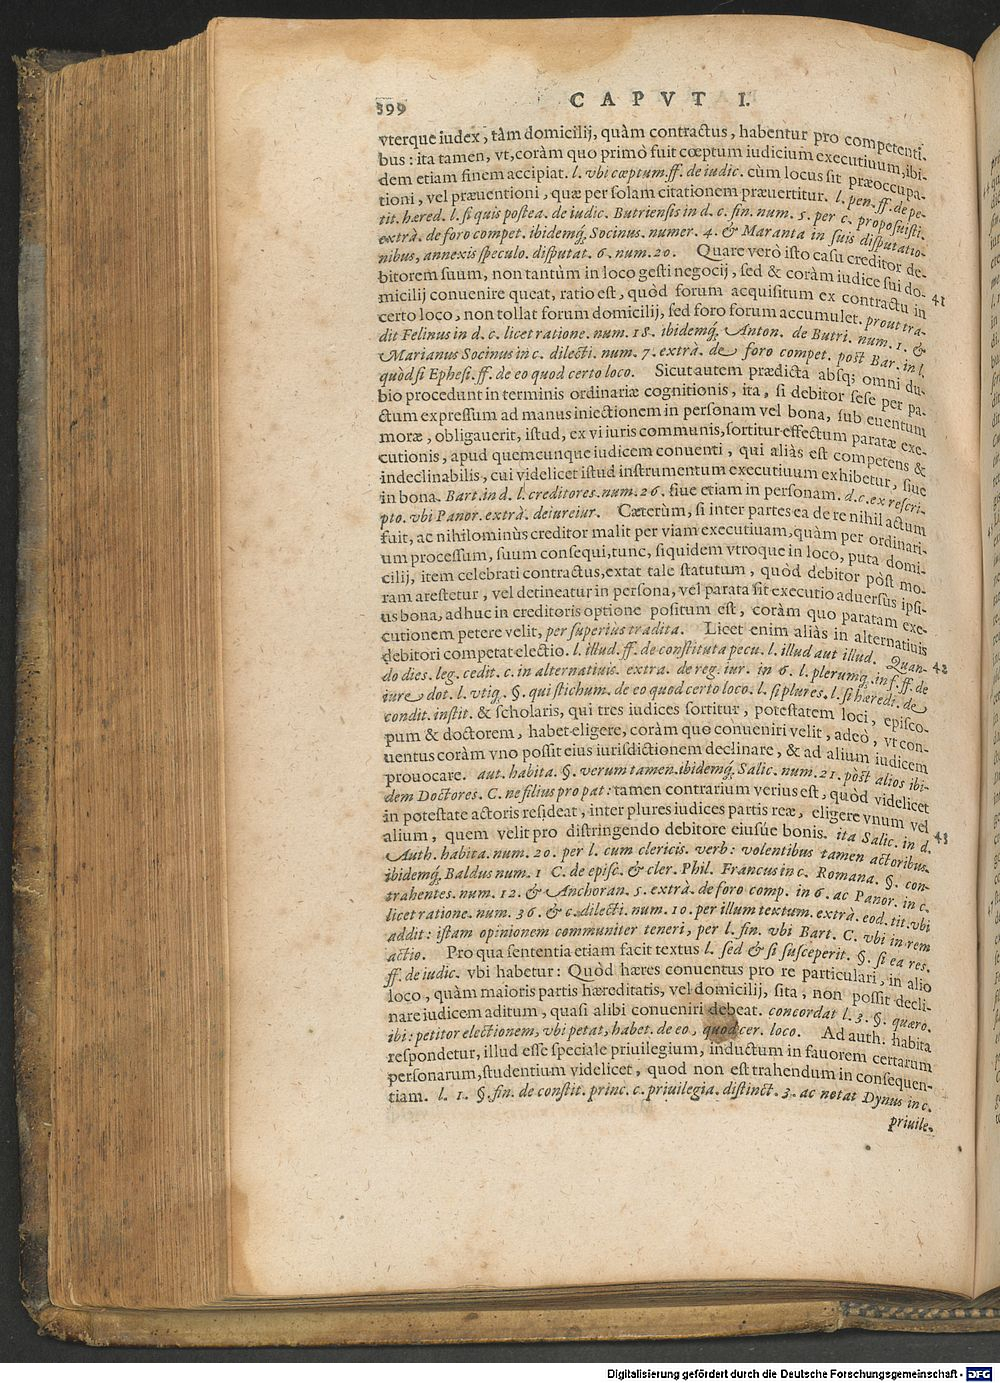 399
CAPVT I.
vterque iudex, tàm domicilij, quàm contractus, habentur pro competenti-
bus: ita tamen, vt, coràm quo primò fuit cœptum iudicium executiuum, ibi-
dem etiam finem accipiat. l. vbi cœptum. ff. de iudic. cùm locus sit præoccupa-
tioni, vel præuentioni, quæ per solam citationem præuertitur. l. pen. ff. de pe-
tit. hæred. l. si quis postea. de iudic. Butriensis in d. c. fin. num. 5. per c. proposuisti.
extrà. de foro compet. ibidemq́; Socinus. numer. 4. & Maranta in suis disputatio-
nibus, annexis speculo. disputat. 6. num. 20. Quare verò isto casu creditor de-
bitorem suum, non tantùm in loco gesti negocij, sed & coràm iudice sui do-
micilij conuenire queat, ratio est, quòd forum acquisitum ex contractu in 41
certo loco, non tollat forum domicilij, sed foro forum accumulet. prout tra-
dit Felinus in d. c. licet ratione. num. 18. ibidemq́; Anton. de Butri. num. 1. &
Marianus Socinus in c. dilecti. num. 7. extrà. de foro compet. post Bar. in l.
quòd si Ephesi. ff. de eo quod certo loco. Sicut autem prædicta absq; omni du-
bio procedunt in terminis ordinariæ cognitionis, ita, si debitor sese per pa-
ctum expressum ad manus iniectionem in personam vel bona, sub euentum
moræ, obligauerit, istud, ex vi iuris communis, sortitur effectum paratæ exe-
cutionis, apud quemcunque iudicem conuenti, qui aliàs est competens &
indeclinabilis, cui videlicet istud instrumentum executiuum exhibetur, siue
in bona. Bart. in d. l. creditores. num. 26. siue etiam in personam. d. c. ex rescri-
pto. vbi Panor. extrà. de iureiur. Cæterùm, si inter partes ea de re nihil actum
fuit, ac nihilominùs creditor malit per viam executiuam, quàm per ordinari-
um processum, suum consequi, tunc, siquidem vtroque in loco, puta domi-
cilij, item celebrati contractus, extat tale statutum, quòd debitor pòst mo-
ram arestetur, vel detineatur in persona, vel parata sit executio aduersùs ipsi-
us bona, adhuc in creditoris optione positum est, coràm quo paratam exe-
cutionem petere velit, per superius tradita. Licet enim aliàs in alternatiuis
debitori competat electio. l. illud. ff. de constituta pecu. l. illud aut illud. Quan- 42
do dies. leg. cedit. c. in alternatiuis. extra. de reg. iur. in 6. l. plerumq́; in f. ff. de
iure dot. l. vtiq́; §. qui stichum. de eo quod certo loco. l. si plures. l. si hæredi. de
condit. instit. & scholaris, qui tres iudices sortitur, potestatem loci, episco-
pum & doctorem, habet eligere, coràm quo conueniri velit, adeò, vt con-
uentus coràm vno possit eius iurisdictionem declinare, & ad alium iudicem
prouocare. aut. habita. §. verum tamen. ibidemq́; Salic. num. 21. pòst alios ibi-
dem Doctores. C. ne filius pro pat: tamen contrarium verius est, quòd videlicet
in potestate actoris resideat, inter plures iudices partis reæ, eligere vnum vel
alium, quem velit pro distringendo debitore eiusúe bonis. ita Salic. in d. 43
Auth. habita. num. 20. per l. cum clericis. verb: volentibus tamen actoribus.
ibidemq́; Baldus num. 1 C. de episc. & cler. Phil. Francus in c. Romana. §. con-
trahentes. num. 12. & Anchoran. 5. extrà. de foro comp. in 6. ac Panor. in c.
licet ratione. num. 36. & c. dilecti. num. 10. per illum textum. extrà. eod. tit. vbi
addit: istam opinionem communiter teneri, per l. fin. vbi Bart. C. vbi in rem
actio. Pro qua sententia etiam facit textus l. sed & si susceperit. §. si ea res.
ff. de iudic. vbi habetur: Quòd hæres conuentus pro re particulari, in alio
loco, quàm maioris partis hæreditatis, vel domicilij, sita, non possit decli-
nare iudicem aditum, quasi alibi conueniri debeat. concordat l. 3. §. quæro.
ibi: petitor electionem, vbi petat, habet. de eo, quod cer. loco. Ad auth. habita
respondetur, illud esse speciale priuilegium, inductum in fauorem certarum
personarum, studentium videlicet, quod non est trahendum in consequen-
tiam. l. 1. §. fin. de constit. princ. c. priuilegia. distinct. 3. ac notat Dynus in c.
priuile-
Digitalisierung gefördert durch die Deutsche Forschungsgemeinschaft - DFG